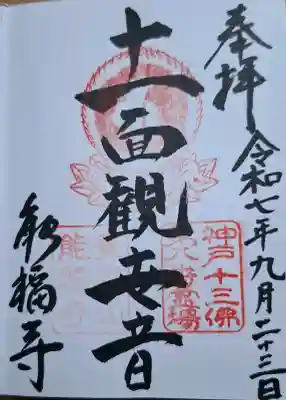 奉拝
令和七年九月二十三日
十一面観世音
神戸十三佛
能福寺